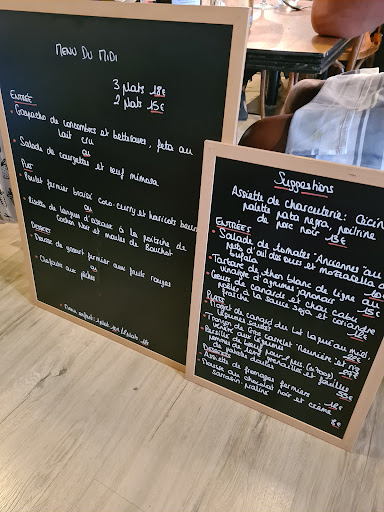 MENU DU MIDI
3 plats 18€
2 plats 15€
ENTRÉE
Gaspacho de concombres et betteraves, feta au
lait cru
ou
Salade de courgettes et œuf mimosa
PLAT
Poulet fermier braisé coco-curry et haricots beurre
ou
Risotto de langues d'oiseaux à la poitrine de
cochon noir et moules de bouchot
DESSERT
Mousse de yaourt fermier aux fruits rouges
ou
Clafoutis aux pêches
Suggestions
Assiette de charcuterie: Cecina
palette pata negra, poitrine
de porc noir 15€
ENTRÉES
Salade de tomates Anciennes au
pesto d'ail des ours et mozzarella di
bufala
Tartare de thon blanc de ligne
vinaigre d'agrumes japonais
Cœurs de canards et d'un cabu
poêlés à la sauce soja et coriandre
fraîche 15€
PLATS
Magret de canard du Lot laqué au miel
légumes sautés
vierge aux légumes
Persillé de bœuf pour 1 pers.
pommes de terre grenailles et feuilles
DESSERTS
Assiette de fromages fermiers
Mousse au chocolat noir et crème
sarrasin praliné 8€